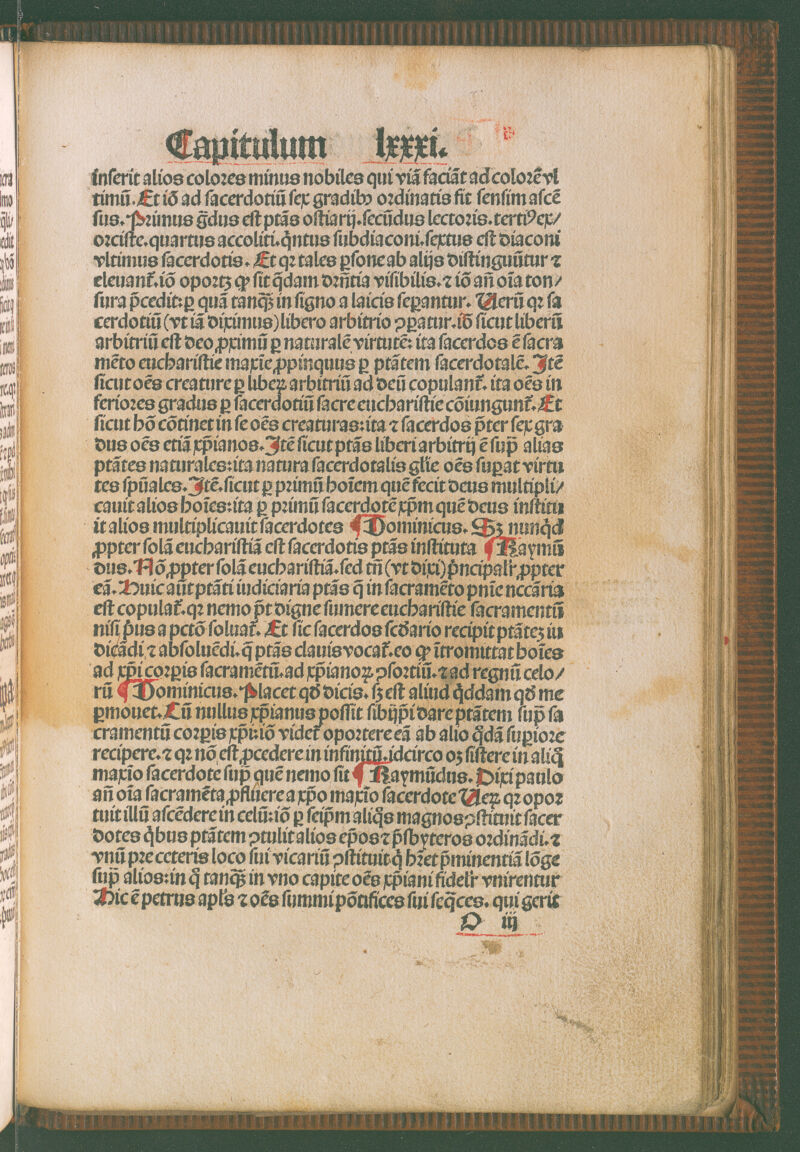 Capitulum lxxxi.
inſerit alios colores minus nobiles qui viā faciāt ad colorē vl
timū. Et iō ad ſacerdotiū ſex gradibꝰ ordinatis fit ſenſim aſcē
ſus. Primus g̃dus eſt ptās oſtiarij. ſecūdus lectoris. tertiꝰ ex/
orciſte. quartus accoliti. q̇ntus ſubdiaconi. ſextus eſt diaconi
vltimus ſacerdotis. Et qꝛ tales ꝑſone ab alijs diſtinguūtur ⁊
eleuant᷑. iō oportꝫ ꝙ ſit q̄dam dr̄ñtia viſibilis. ⁊ iō añ oīa ton/
ſura p̄cedit: ꝑ quā tanq̃ꝫ in ſigno a laicis ſeꝑantur. Uerū qꝛ ſa
cerdotiū (vt iā diximus) libero arbitrio ꝯꝑatur. iō ſicut liberū
arbitriū eſt deo ꝓximū ꝑ naturalē virtutē: ita ſacerdos ē ſacra
mēto euchariſtie maxīe ꝓpinquus ꝑ ptātem ſacerdotalē. Itē
ſicut oēs creature ꝑ libeꝝ arbitriū ad deū copulant᷑. ita oēs in
feriores gradus ꝑ ſacerdotiū ſacre euchariſtie cōiungunt᷑. Et
ſicut hō cōtinet in ſe oēs creaturas: ita ⁊ ſacerdos p̄ter ſex gra
dus oēs etiā xp̄ianos. Itē ſicut ptās liberi arbitrij ē ſuꝑ alias
ptātes naturales: ita natura ſacerdotalis gl̄ie oēs ſuꝑat virtu
tes ſpūales. Itē. ſicut ꝑ primū hoīem quē fecit deus multipli/
cauit alios hoīes: ita ꝑ primū ſacerdotē xp̄m quē deus inſtitu
it alios multiplicauit ſacerdotes ¶ Dominicus. Sꝫ nunq̇d
ꝓpter ſolā euchariſtiā eſt ſacerdotis ptās inſtituta ¶ Raymū
dus. Nō ꝓpter ſolā euchariſtiā. ſed tñ (vt dixi) p̄ncipalr̄ ꝓpter
eā. Huic aūt ptāti iudiciaria ptās q̄ in ſacramēto pnīe nccāria
eſt copulat᷑. qꝛ nemo p̄t digne ſumere euchariſtie ſacramentū
niſi p̄us a pctō ſoluat᷑. Et ſic ſacerdos ſcd̄ario recipit ptātēꝫ iu
dicādi ⁊ abſoluēdi. q̄ ptās clauis vocat᷑. eo ꝙ ītromittat hoīes
ad xp̄i corꝑis ſacramētū. ad xp̄ianoꝝ ꝯſortiū. ⁊ ad regnū celo/
rū ¶ Dominicus. Placet qđ dicis. ſꝫ eſt aliud q̇ddam qđ me
ꝑmouet. Cū nullus xp̄ianus poſſit ſibijp̄i dare ptātem ſuꝑ ſa
cramentū corꝑis xp̄i: iō videt᷑ oportere eā ab alio q̇dā ſuꝑiore
recipere. ⁊ qꝛ nō eſt ꝓcedere in infinitū. idcirco oꝫ ſiſtere in aliq̇
maxīo ſacerdote ſuꝑ quē nemo ſit ¶ Raymūdus. Dixi paulo
añ oīa ſacramēta ꝓfluere a xp̄o maxīo ſacerdote Ueꝝ qꝛ opor
tuit illū aſcēdere in celū: iō ꝑ ſeip̄m aliq̇s magnos ꝯſtituit ſacer
dotes q̇bus ptātem ꝯtulit alios ep̄os ⁊ p̄ſbyteros ordinādi. ⁊
vnū pre ceteris loco ſui vicariū ꝯſtituit q̇ hꝫet p̄minentiā lōge
ſuꝑ alios: in q̇ tanq̃ꝫ in vno capite oēs xp̄iani fidelr̄ vnirentur
Hic ē petrus apl̄s ⁊ oēs ſummi pōtifices ſui ſeq̄ces. qui gerit
D iij